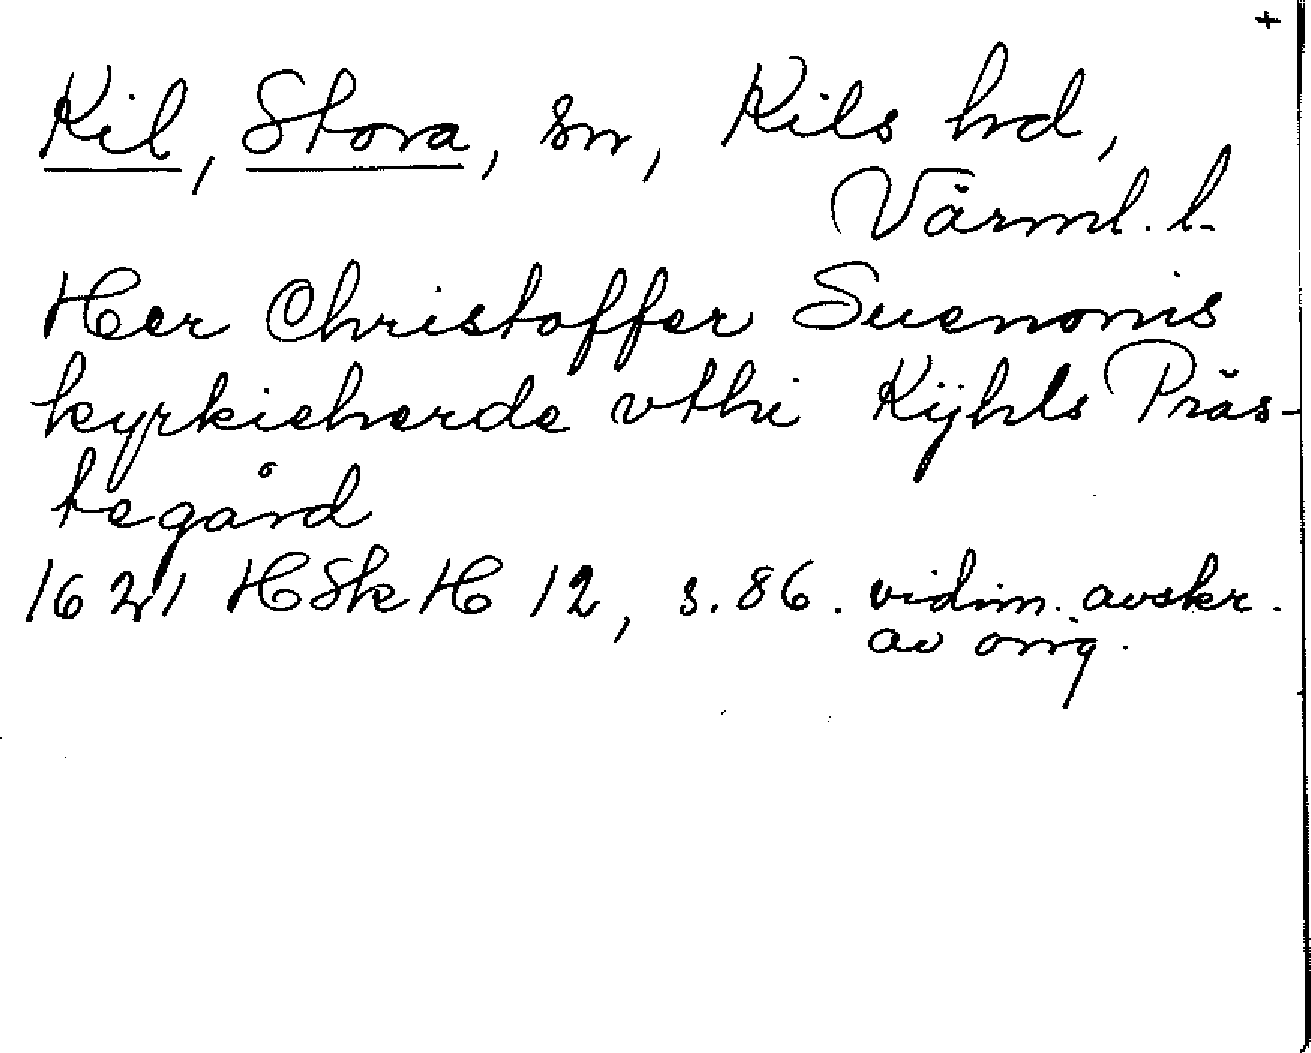 +
Kil, Stora, sn, Kils hd,
Värml. l.
Her Christoffer Suenonis
kyrkieherde vthi Kÿhls Präs-
tegård
1621 HSkH 12, s. 86. vidim. avskr.
av orig.